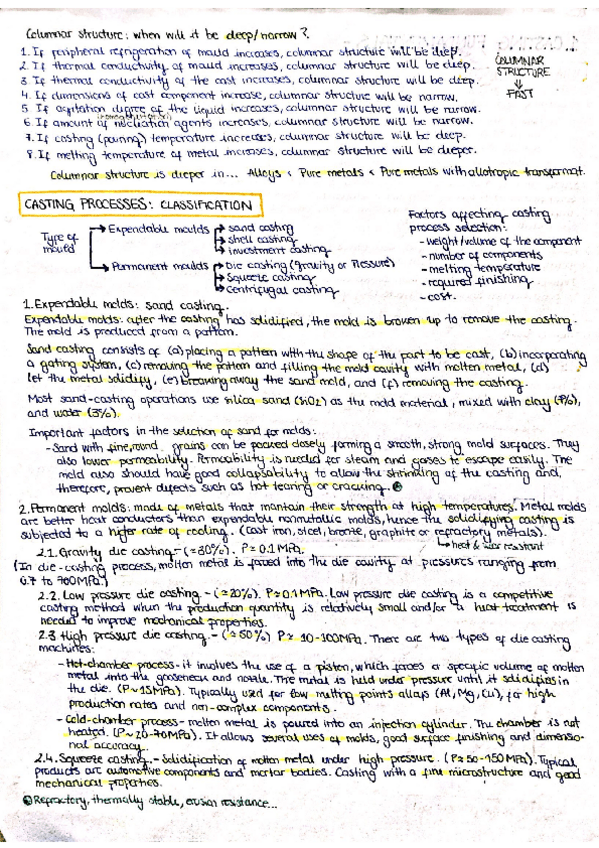 Columnar structure: when will it be deep/narrow?
1. If peripheral refrigeration of mould increases, columnar structure will be deep.
2. If thermal conductivity of mould increases, columnar structure will be deep.
3. If thermal conductivity of the cast increases, columnar structure will be deep.
4. If dimensions of cast component increase, columnar structure will be narrow.
5. If agitation degree of the liquid increases, columnar structure will be narrow.
6. If amount of nucleation agents increases, columnar structure will be narrow.
7. If casting (pouring) temperature increases, columnar structure will be deep.
8. If melting temperature of metal increases, columnar structure will be deeper.
COLUMNAR
STRUCTURE
⇓
FAST
Columnar structure is deeper in... Alloys < Pure metals < Pure metals with allotropic transformat.
CASTING PROCESSES: CLASSIFICATION
Type of
mould
Expendable moulds → sand casting
→ shell casting
→ investment casting
Permanent moulds → Die casting (gravity or Pressure)
→ Squeeze casting
→ Centrifugal casting
Factors affecting casting
process selection:
- weight/volume of the component
- number of components
- melting temperature
- required finishing
- cost.
1. Expendable molds: sand casting.
Expendable molds: after the casting has solidified, the mold is broken up to remove the casting.
The mold is produced from a pattern.
Sand casting consists of (a) placing a pattern with the shape of the part to be cast, (b) incorporating
a gating system, (c) removing the pattern and filling the mold cavity with molten metal, (d)
let the metal solidify, (e) breaking away the sand mold, and (f) removing the casting.
Most sand-casting operations use silica sand (SiO2) as the mold material, mixed with clay (7%),
and water (3%).
Important factors in the selection of sand for molds:
- Sand with fine, round grains can be packed closely forming a smooth, strong mold surfaces. They
also lower permeability. Permeability is needed for steam and gases to escape easily. The
mold also should have good collapsability to allow the shrinking of the casting and,
therefore, prevent defects such as hot tearing or cracking.
2. Permanent molds: made of metals that mantain their strength at high temperatures. Metal molds
are better heat conductors than expendable nonmetallic molds, hence the solidifying casting is
subjected to a higher rate of cooling. (Cast iron, steel, bronze, graphite or refractory metals).
↳ heat & wear resistant
2.1. Gravity die casting - (≃30%). P≃0.1 MPa.
(In die-casting process, molten metal is forced into the die cavity at pressures ranging from
0.7 to 700MPa.)
2.2. Low pressure die casting - (≃20%). P≃0.1 MPa. Low pressure die casting is a competitive
casting method when the production quantity is relatively small and/or a heat treatment is
needed to improve mechanical properties.
2.3 High pressure die casting - (≃50%) P≃ 10-100MPa. There are two types of die casting
machines:
- Hot-chamber process - it involves the use of a piston, which forces a specific volume of molten
metal into the gooseneck and nozzle. The metal is held under pressure until it solidifies in
the die. (P~15MPa). Typically used for low melting points alloys (Al, Mg, Cu), for high
production rates and non-complex components.
- Cold-chamber process - molten metal is poured into an injection cylinder. The chamber is not
heated. (P~20-70MPa). It allows several uses of molds, good surface finishing and dimensio-
nal accuracy.
2.4. Squeeze casting. - Solidification of molten metal under high pressure. (P≃50-150 MPa). Typical
products are automotive components and mortar bodies. Casting with a fine microstructure and good
mechanical properties.
Refractory, thermally stable, erosion resistance...